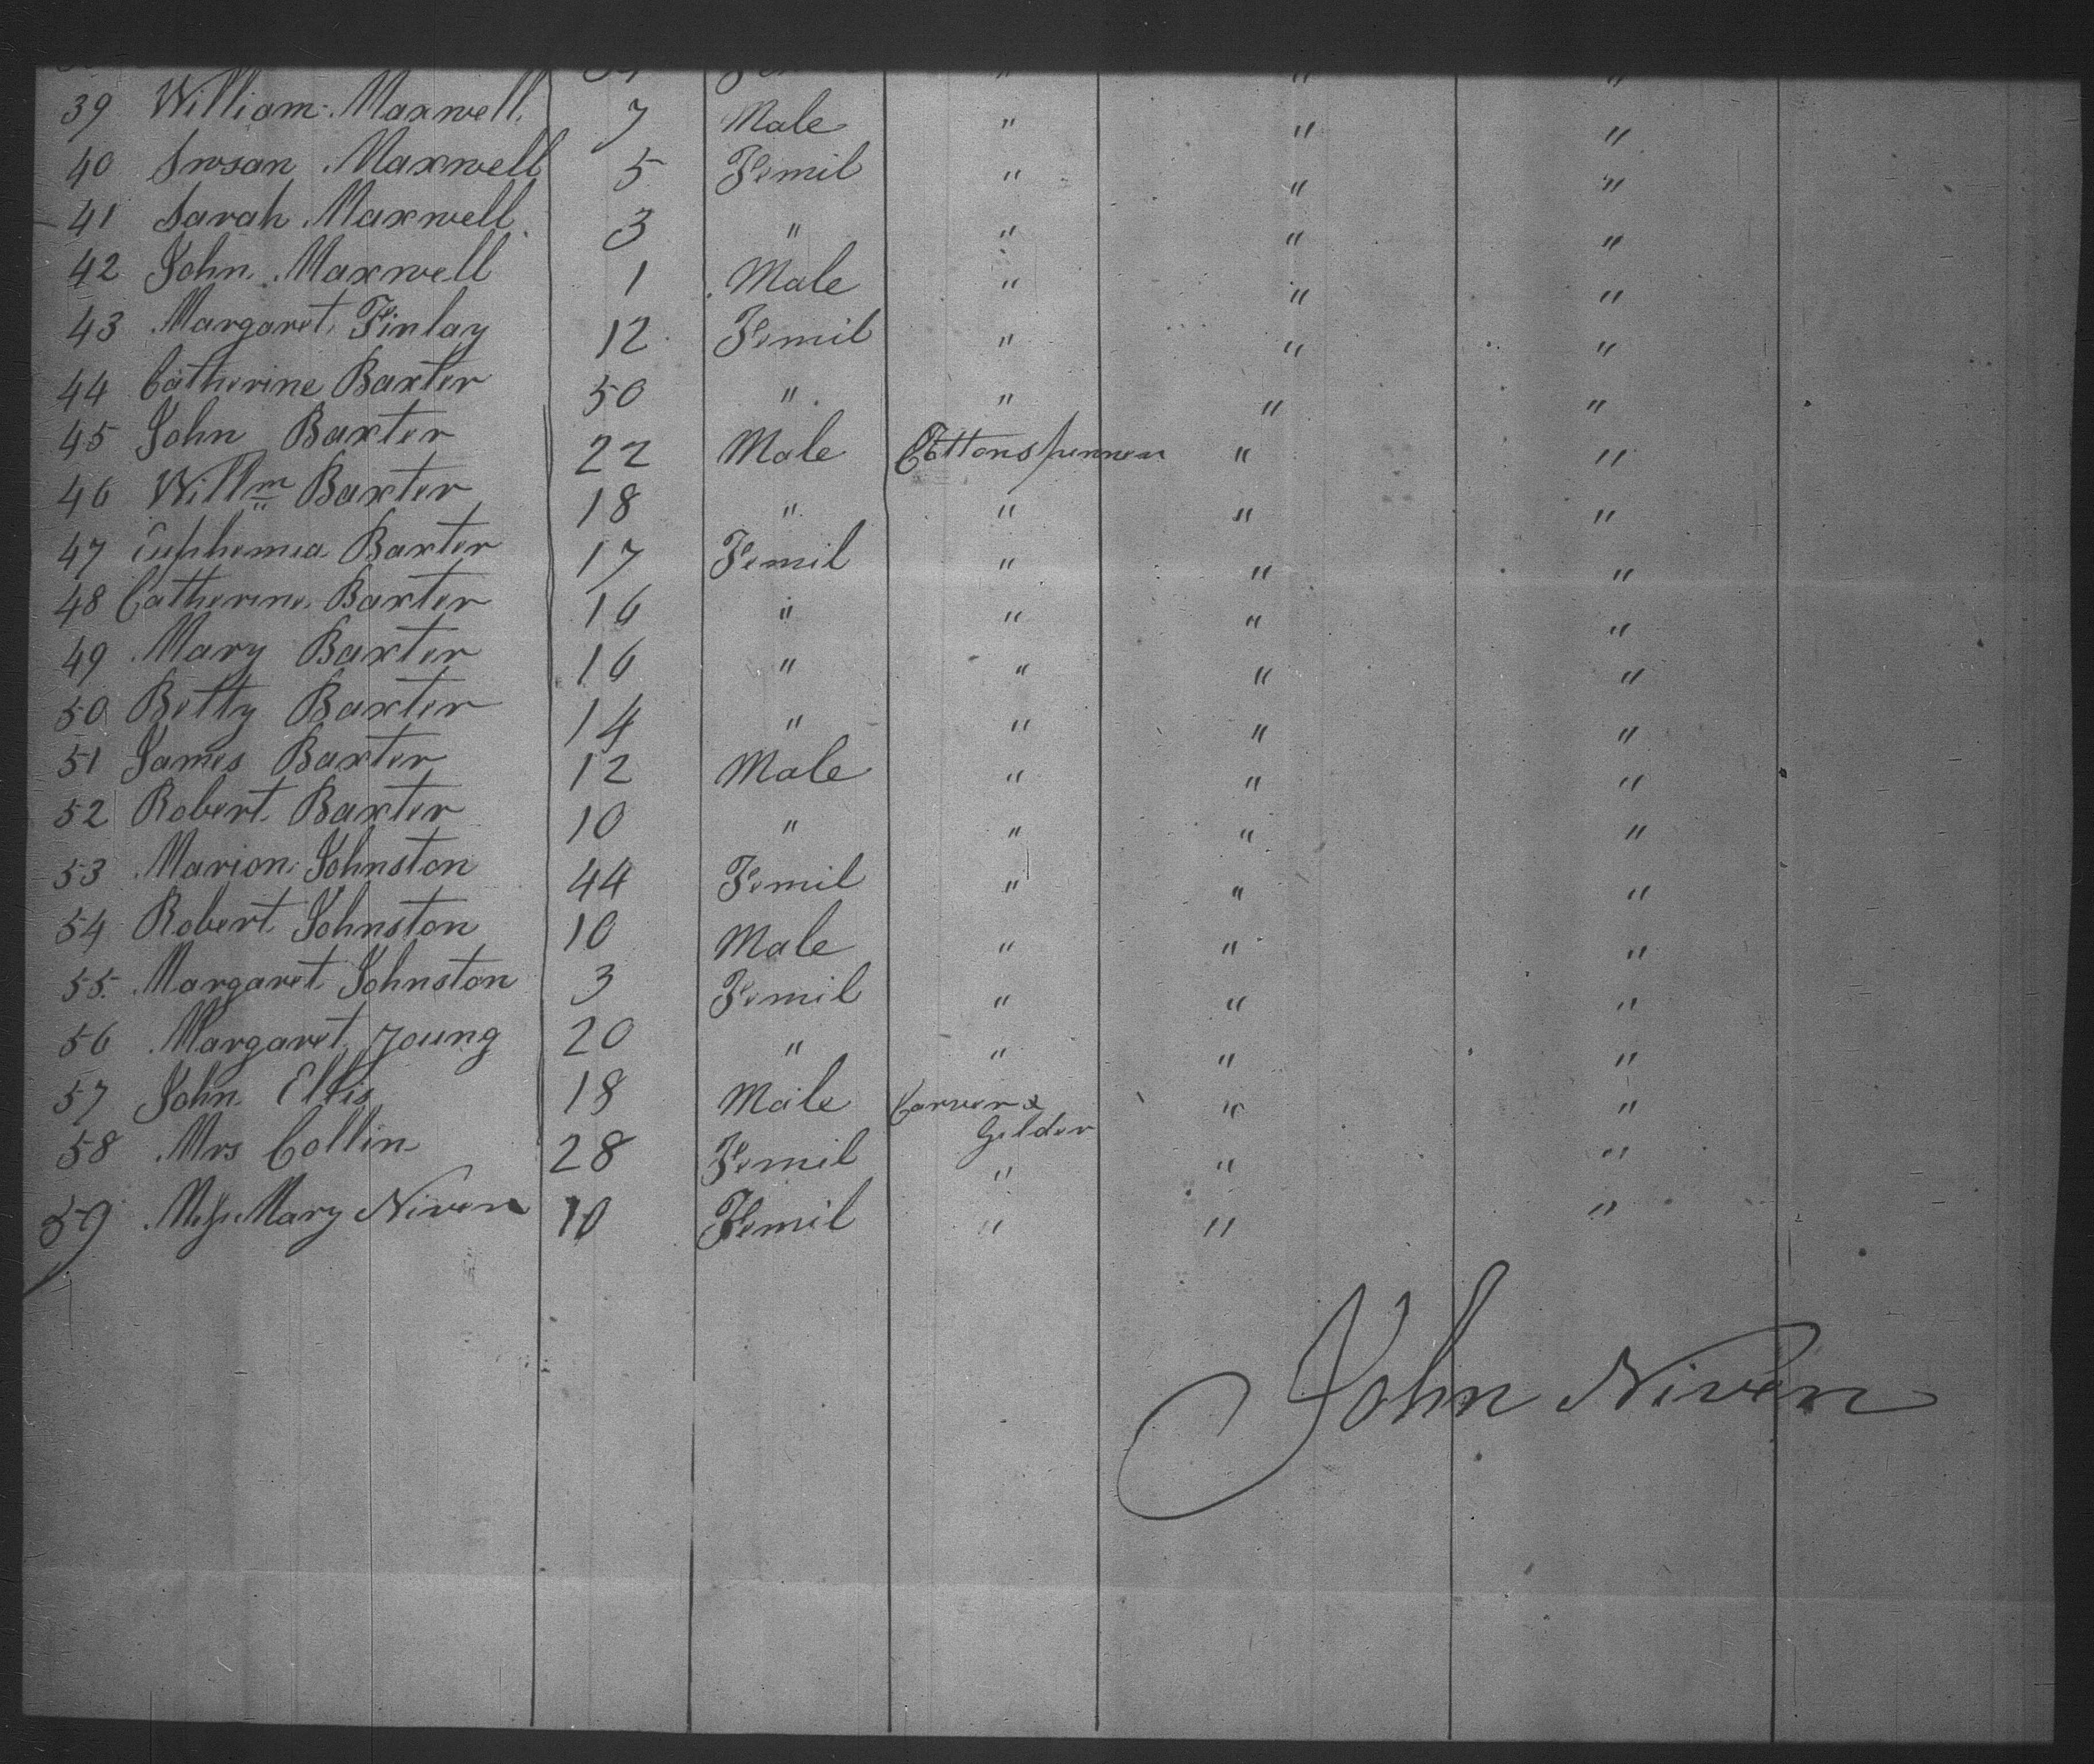 39 William Maxwell 7 Male " " "
40 Susan Maxwell 5 Femil " " "
41 Sarah Maxwell 3 " " " "
42 John Maxwell 1 Male " " "
43 Margaret Finlay 12 Femil " " "
44 Catherine Baxter 50 " " " "
45 John Baxter 22 Male Cottonspinner " "
46 Willm Baxter 18 " " " "
47 Euphemia Baxter 17 Femil " " "
48 Catherine Baxter 16 " " " "
49 Mary Baxter 16 " " " "
50 Betty Baxter 14 " " " "
51 James Baxter 12 Male " " "
52 Robert Baxter 10 " " " "
53 Marion Johnston 44 Femil " " "
54 Robert Johnston 10 Male " " "
55 Margaret Johnston 3 Femil " " "
56 Margaret Young 20 " " " "
57 John Ellis 18 Male Carver & " "
Gilder
58 Mrs Collin 28 Femil " " "
59 Miss Mary Niven 10 Femil " " "
John Niven